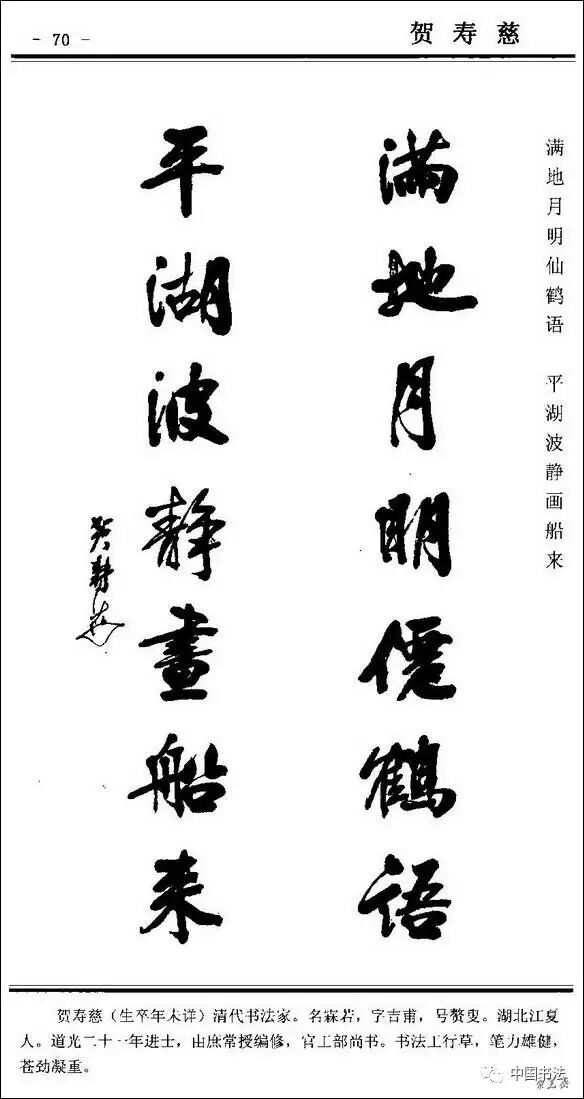 - 70 -
贺寿慈
满地月明仙鹤语 平湖波静画船来
满地月明僊鶴语
平湖波静畫船来
贺寿慈
贺寿慈(生卒年未详)清代书法家。名霖若,字吉甫,号赘叟。湖北江夏
人。道光二十一年进士,由庶常授编修,官工部尚书。书法工行草,笔力雄健,
苍劲凝重。
中国书法